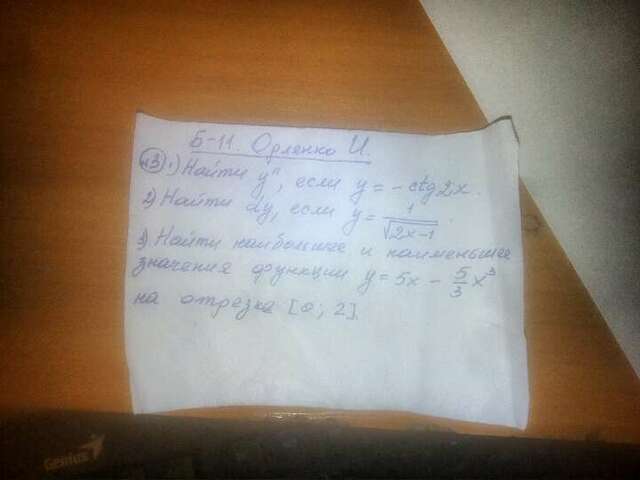 Б-11. Орленко И.
№3 1) Найти y'', если y = - ctg 2x.
2) Найти dy, если y = 1/√(2x-1).
3) Найти наибольшее и наименьшее
значения функции y = 5x - 5/3 x³
на отрезке [0; 2].
Genius